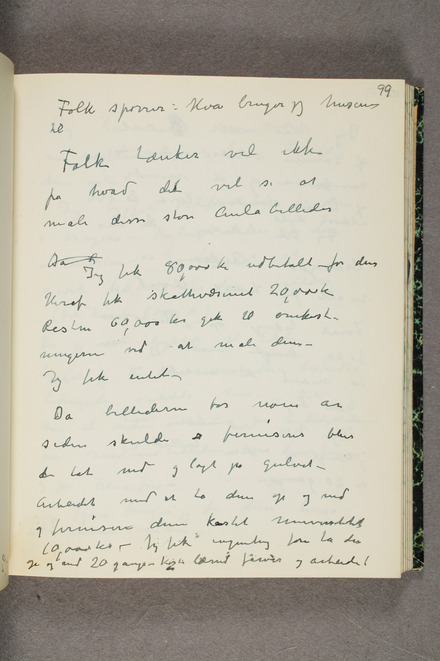 99
Folk spørrer: Hva bruger jeg husene
til
Folk tænker vel ikke
på hvad det vil si at
male disse store Aulabilleder
Jeg fik 80,000 kr udbetalt for dem
Heraf fik skattvæsenet 20,000 kr
Resten 60,000 kr gik til omkost-
ningerne ved at male dem –
Jeg fik
Da billederne for nogen år
siden skulde ferniseres blev
de tat ned og lagt på gulvet –
Arbeidet med at ta dem op og ned
og fernisere dem kostet universitetet
10,000 kr – Jeg fik ingenting for at ta dem
op og ned 20 ganger og arbeidet